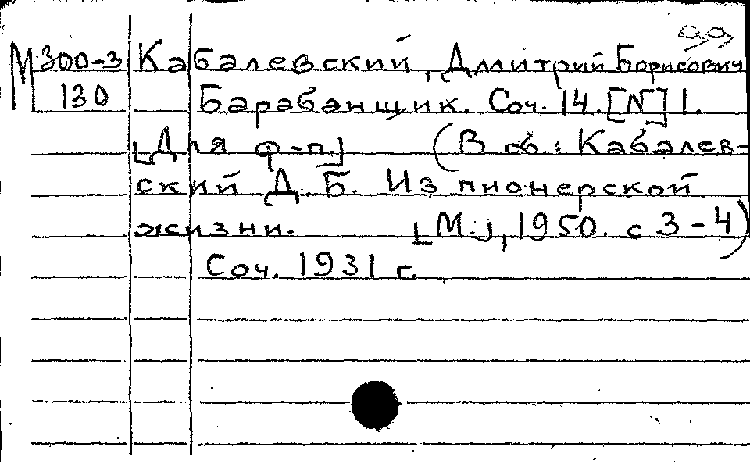 М 300-3 Кабалевский, Дмитрий Борисович
130 Барабанщик. Соч. 14. [N] 1.
[Для ф-п.] (В сб: Кабалев-
ский Д. Б. Из пионерской
жизни. [М.], 1950. с 3-4)
Соч. 1931 г.